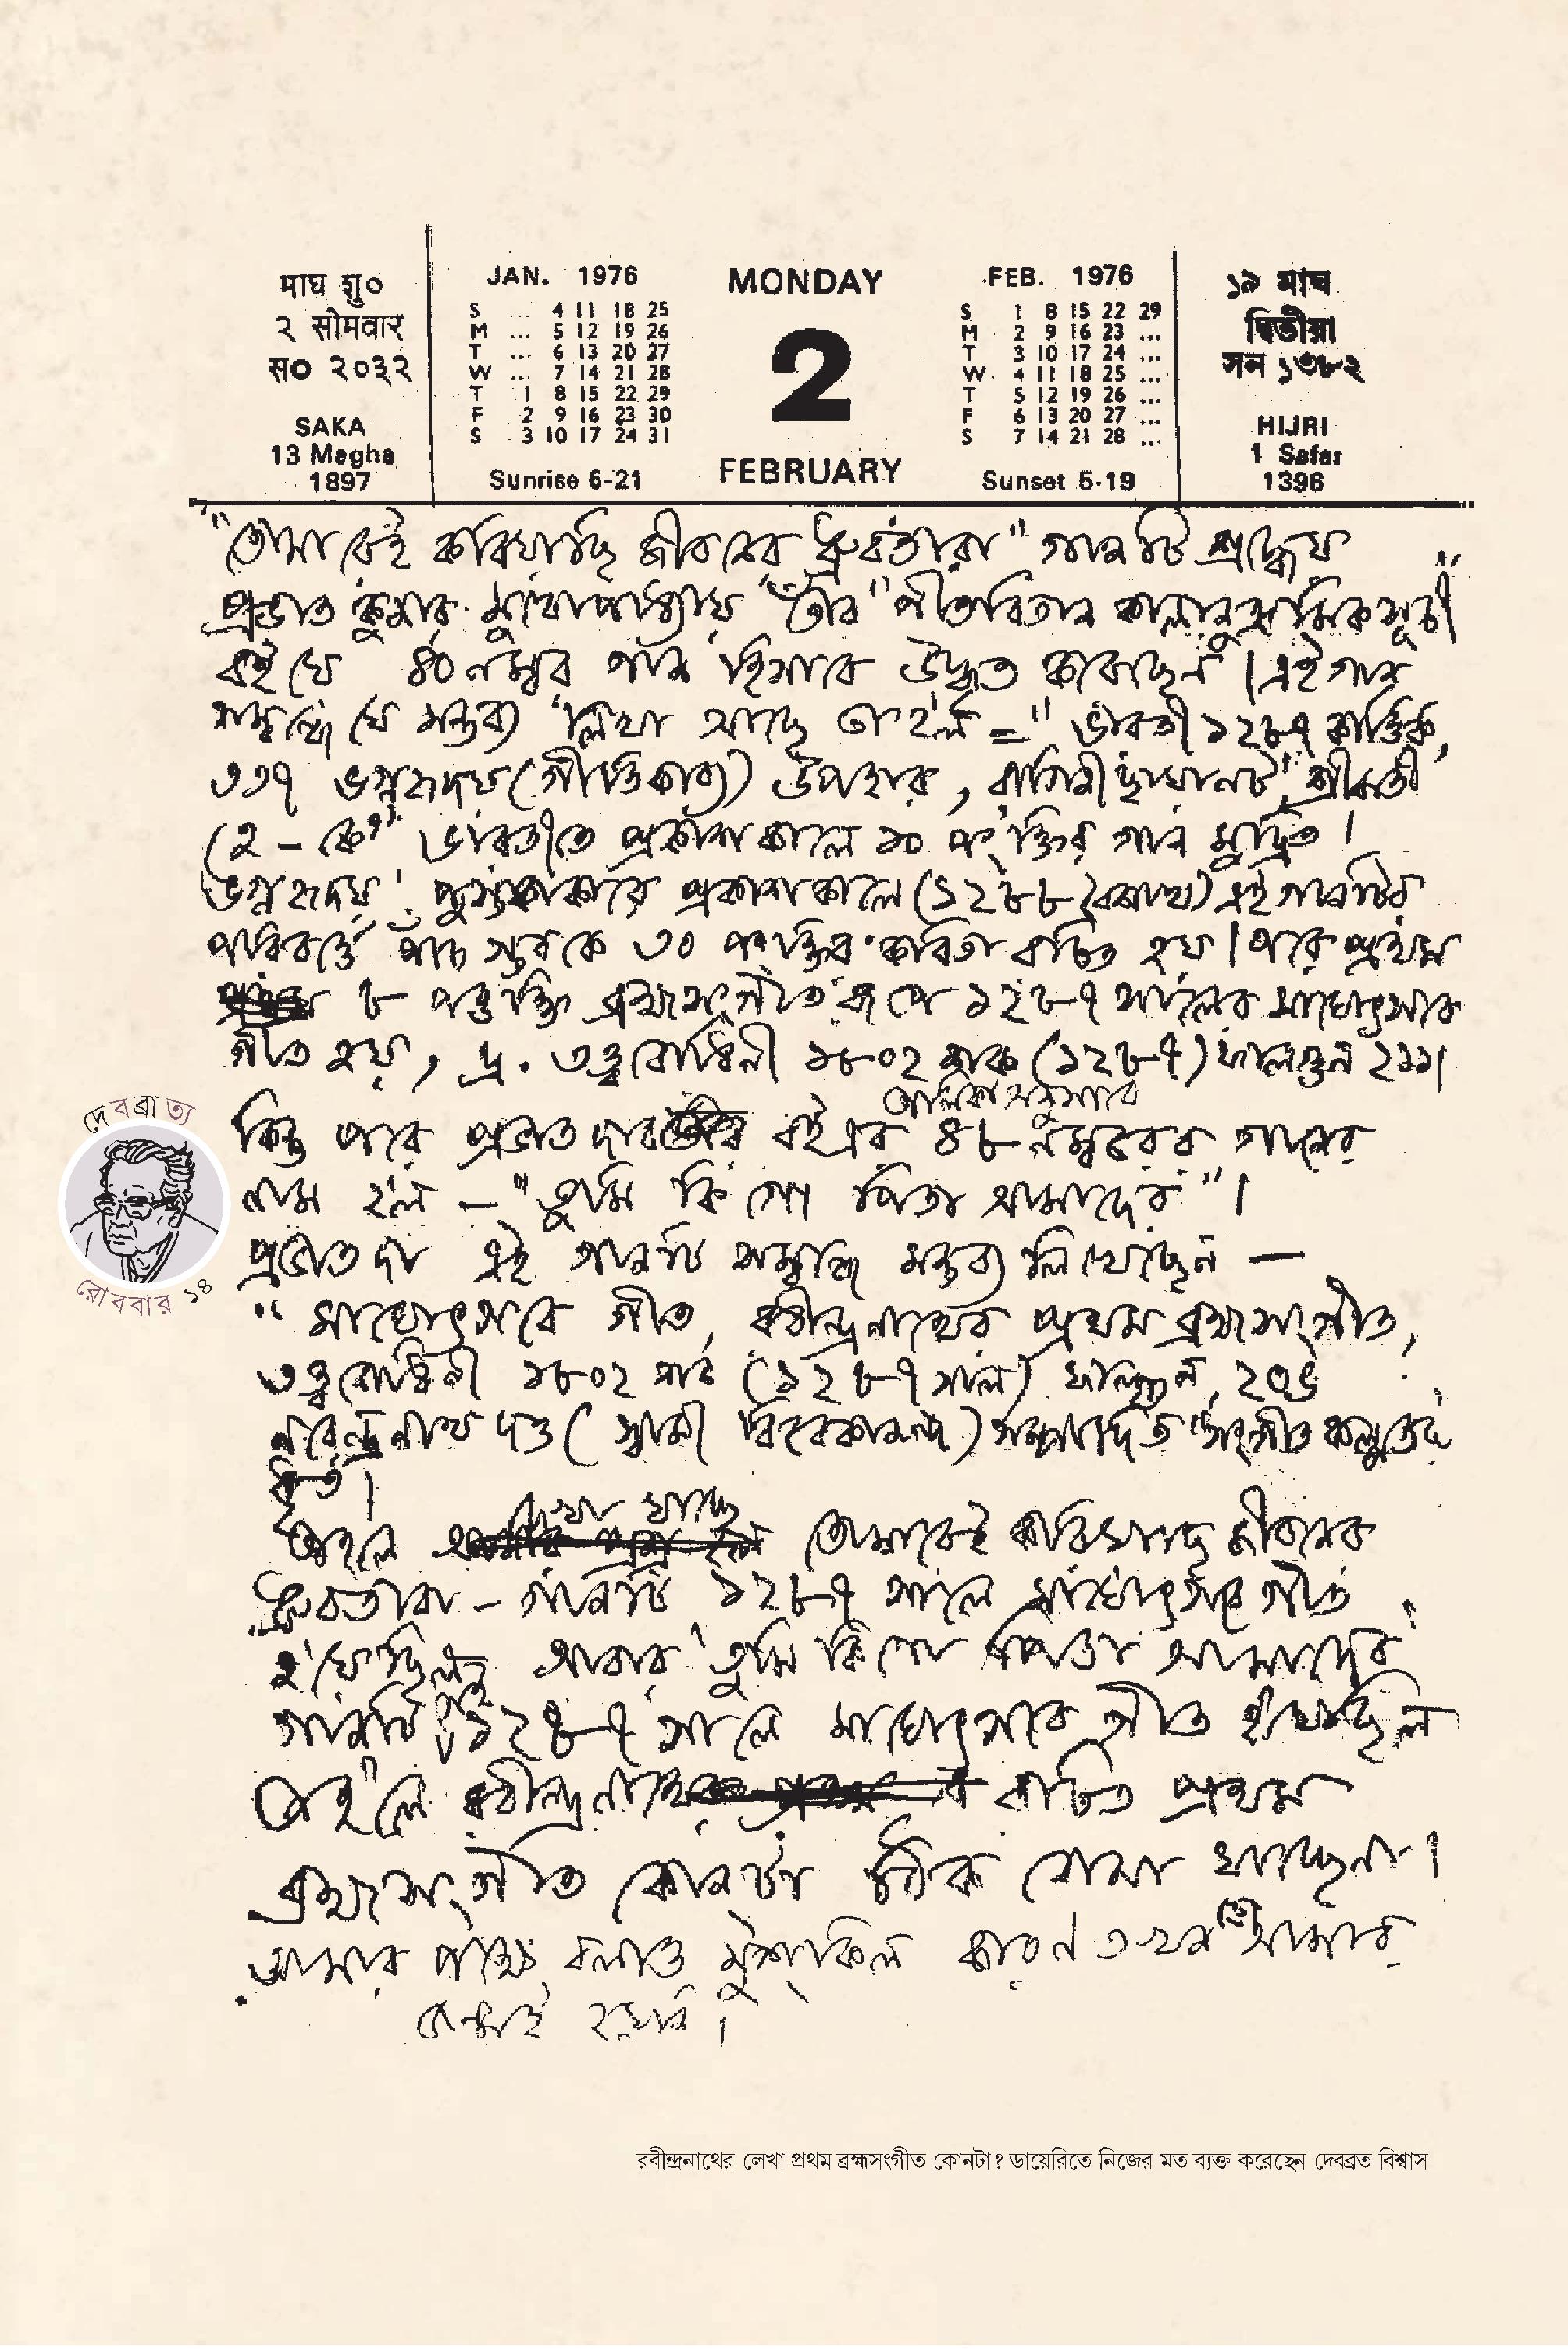 माघ शु०
२ सोमवार
स० २०३२
SAKA
13 Magha
1897
JAN. 1976
S ... 4 11 18 25
M ... 5 12 19 26
T ... 6 13 20 27
W ... 7 14 21 28
T 1 8 15 22 29
F 2 9 16 23 30
S 3 10 17 24 31
Sunrise 6-21
MONDAY
2
FEBRUARY
FEB. 1976
S 1 8 15 22 29
M 2 9 16 23 ...
T 3 10 17 24 ...
W 4 11 18 25 ...
T 5 12 19 26 ...
F 6 13 20 27 ...
S 7 14 21 28 ...
Sunset 5-19
১৯ মাঘ
দ্বিতীয়া
সন ১৩৮২
HIJRI
1 Safar
1396
"তোমারেই করিয়াছি জীবনের ধ্রুবতারা" গানটি শ্রদ্ধেয়
প্রভাত কুমার মুখোপাধ্যায় তাঁর "গীতবিতান কালানুক্রমিক সূচী"
বইয়ে ৪০ নম্বর গান হিসাবে উদ্ধৃত করেছেন। এই গান
সম্বন্ধে যে মন্তব্য লিখা আছে তা হ'ল = "ভারতী ১২৮৭ কার্ত্তিক,
৩৩৭ ভগ্নহৃদয় (গীতিকাব্য) উপহার, রাগিনী ছায়ানট, শ্রীমতী
হে - কে" ভারতীতে প্রকাশ কালে ১০ পংক্তির গান মুদ্রিত।
'ভগ্নহৃদয়' পুস্তকাকারে প্রকাশকালে (১২৮৮ বৈশাখ) এই গানটির
পরিবর্ত্তে পাঁচ স্তবকে ৩০ পংক্তির কবিতা রচিত হয়। পরে প্রথম
৮ পঙক্তি ব্রহ্মসংগীত রূপে ১২৮৭ সালের মাঘোৎসবে
গীত হয়, দ্র. তত্ত্ববোধিনী ১৮০২ শক (১২৮৭) ফাল্গুন ২১১।
তালিকা অনুসারে
কিন্তু পরে প্রভাতদার বই এর ৪৮ নম্বরের গানের
নাম হল - "তুমি কি গো পিতা আমাদের"।
প্রভাতদা এই গানটি সম্বন্ধে মন্তব্য লিখেছেন —
"মাঘোৎসবে গীত, রবীন্দ্রনাথের প্রথম ব্রহ্মসংগীত,
তত্ত্ববোধিনী ১৮০২ শক (১২৮৭ সাল) ফাল্গুন,
নরেন্দ্রনাথ দত্ত (স্বামী বিবেকানন্দ) সম্পাদিত সংগীত কল্পতরু
ধৃত।
দেখা যাচ্ছে
তাহলে তোমারেই করিয়াছি জীবনের
ধ্রুবতারা - গানটি ১২৮৭ সালে মাঘোৎসবে গীত
হ'য়েছিল আবার 'তুমি কি গো পিতা আমাদের'
গানটি ১২৮৭ সালে মাঘোৎসবে গীত হ'য়েছিল
তাহ'লে রবীন্দ্রনাথের রচিত প্রথম
ব্রহ্মসংগীত কোনটা ঠিক বোঝা যাচ্ছেনা।
আমার পক্ষে বলাও মুশ্‌কিল কারণ তখন তো আমার
জন্মই হয়নি।
দে ব ব্রা ত্য
রো ব বা র ১৪
রবীন্দ্রনাথের লেখা প্রথম ব্রহ্মসংগীত কোনটা? ডায়েরিতে নিজের মত ব্যক্ত করেছেন দেবব্রত বিশ্বাস